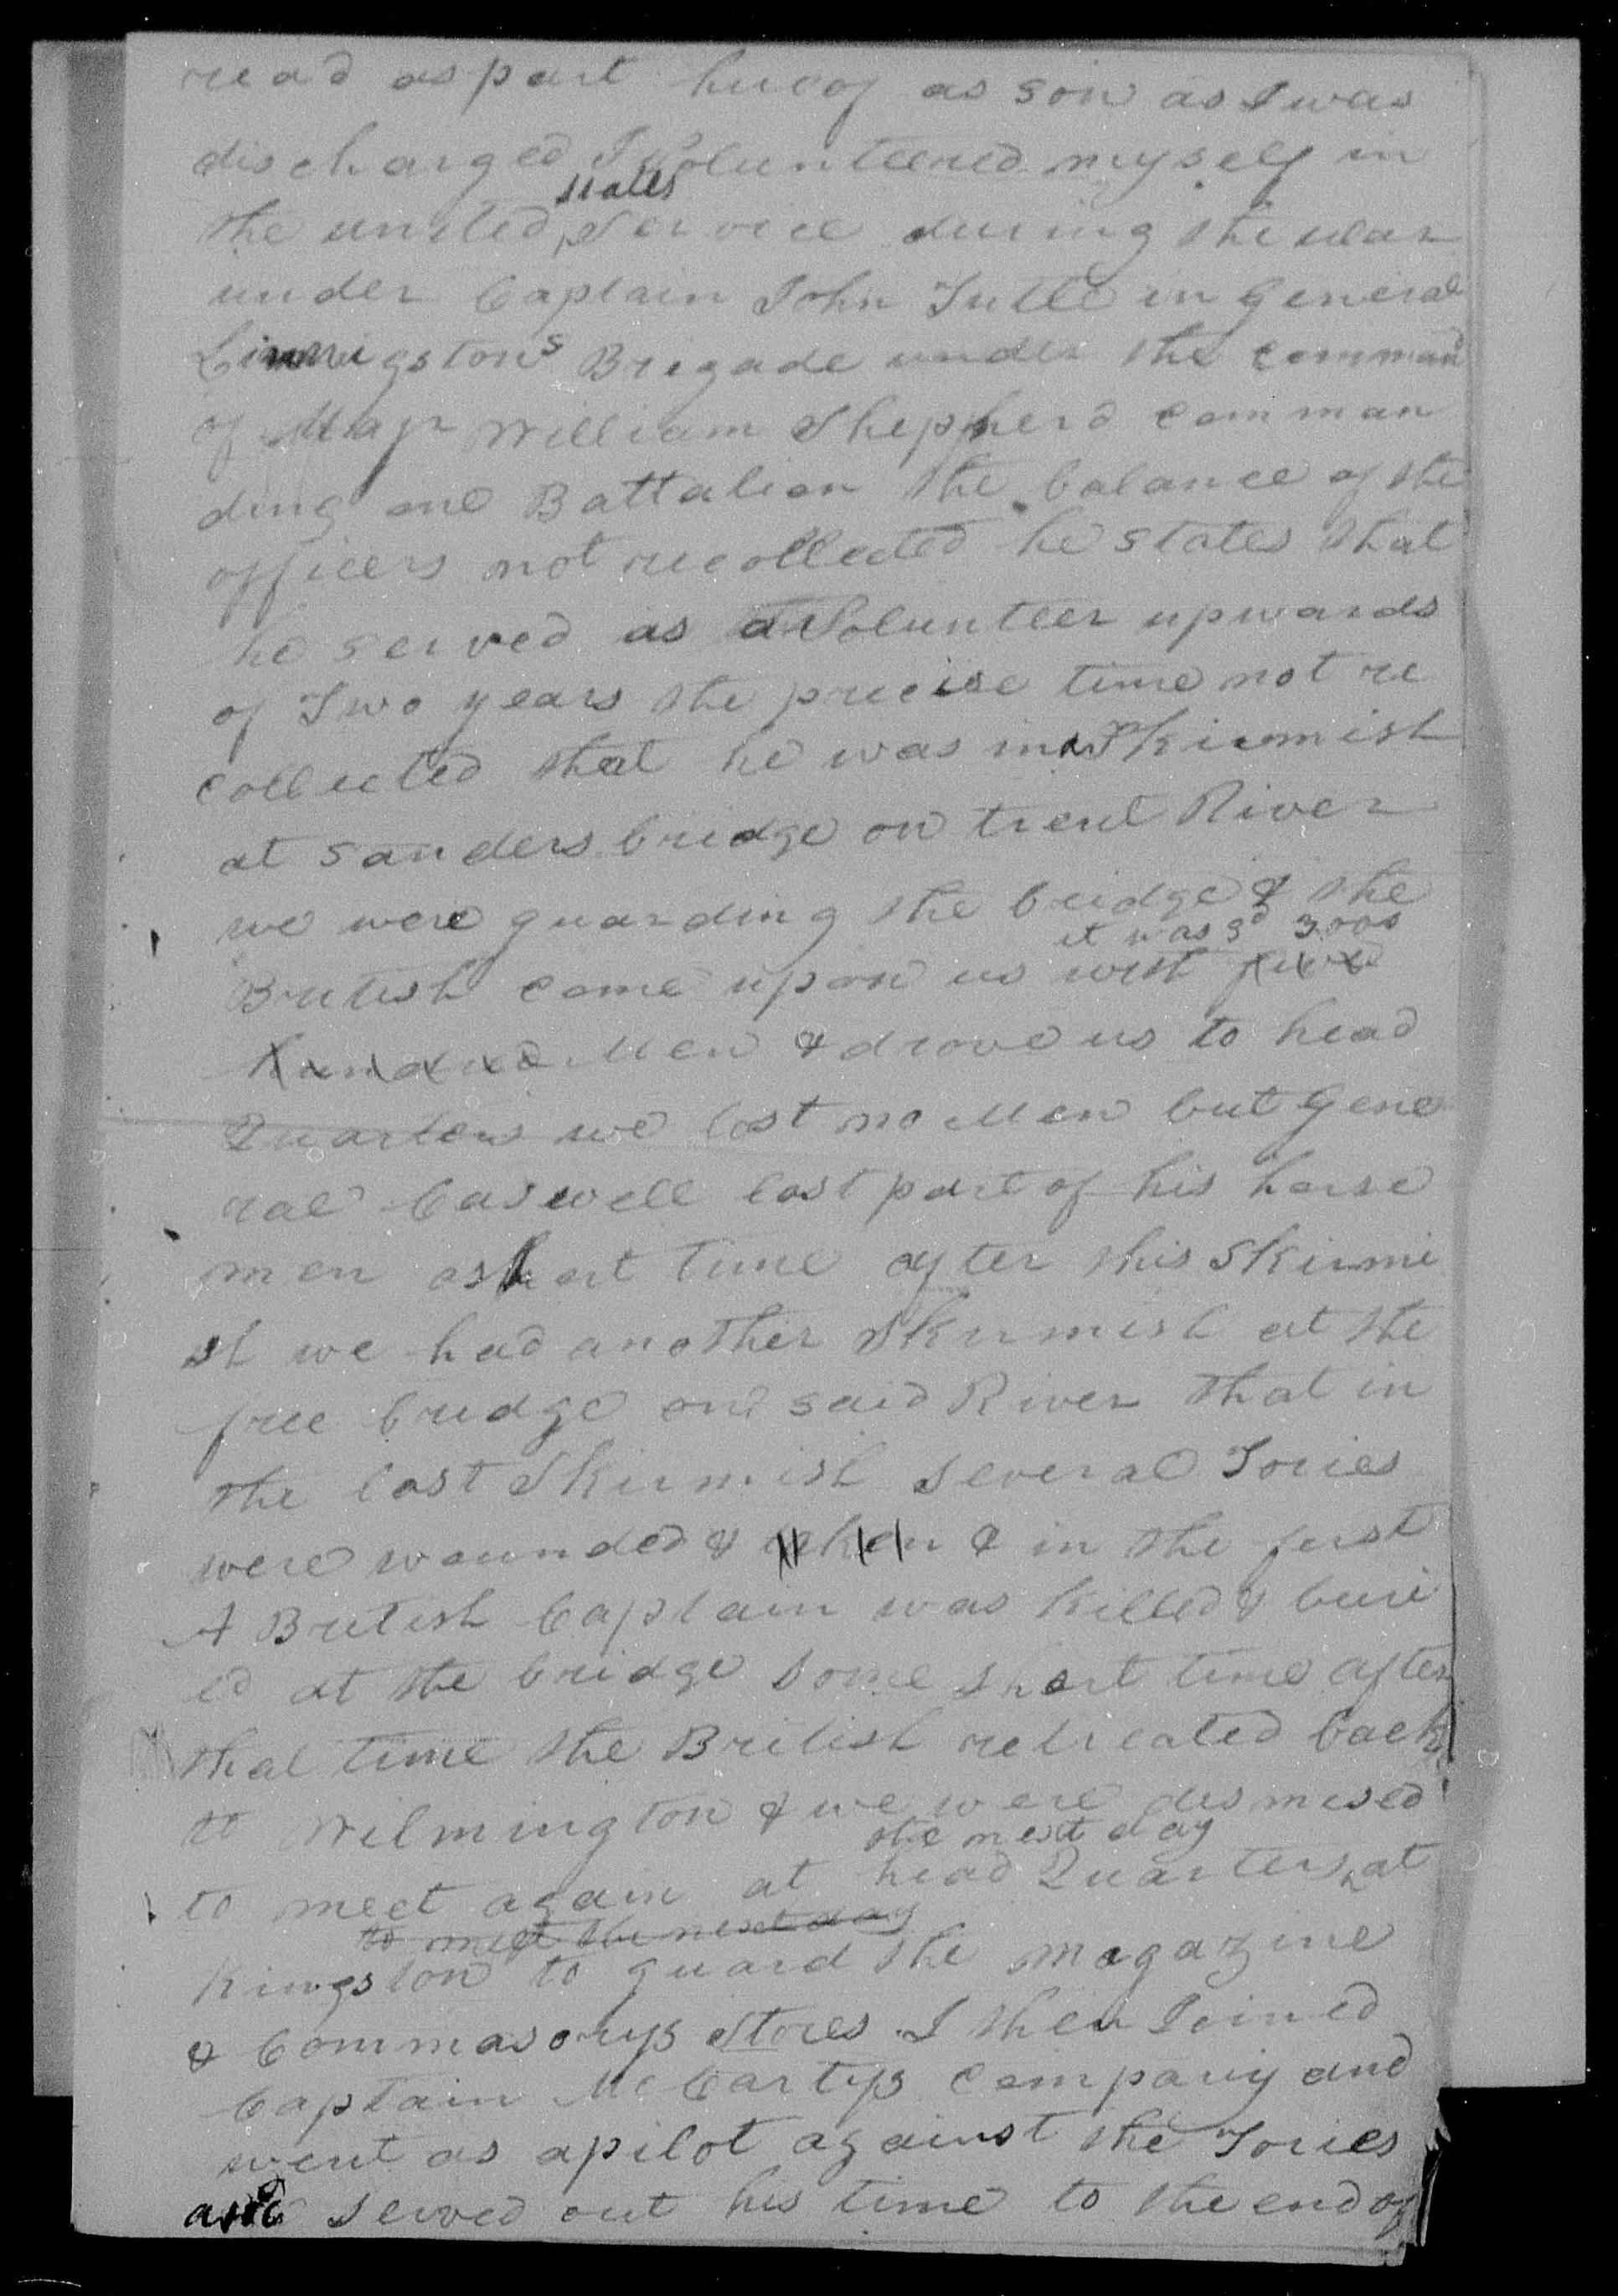 read as part hereof as son as I was
discharged I volunteered myself in
states
the united service during the war
under Captain John Tutle in General
Linnigstons Brigade under the command
of Majr William Shepherd comman
ding one Battalion the balance of the
officers not recollected he states that
he served as a Volunteer upwards
of Two years the precise time not re
collected that he was in a Skirmish
at sanders bridge on trent River
we were guarding the bridge & the
it was sd 3000
British came upon us with five
hundred Men & drove us to head
Quarters we lost no Men but Gene
ral Caswell lost part of his horse
men a short time after this Skirmi
sh we had another Skirmish at the
free bridge on said River that in
the last Skirmish several Tories
were wounded & taken & in the first
A British Captain was killed & buri
ed at the bridge some short time after
that time the British retreated back
to Wilmington & we were dismised
the next day
to meet again at head Quarters at
to meet the next day
Kingston to guard the magazine
& Commasorys Stores I then Joined
Captain McCartys company and
went as a pilot against the Tories
and served out his time to the end of